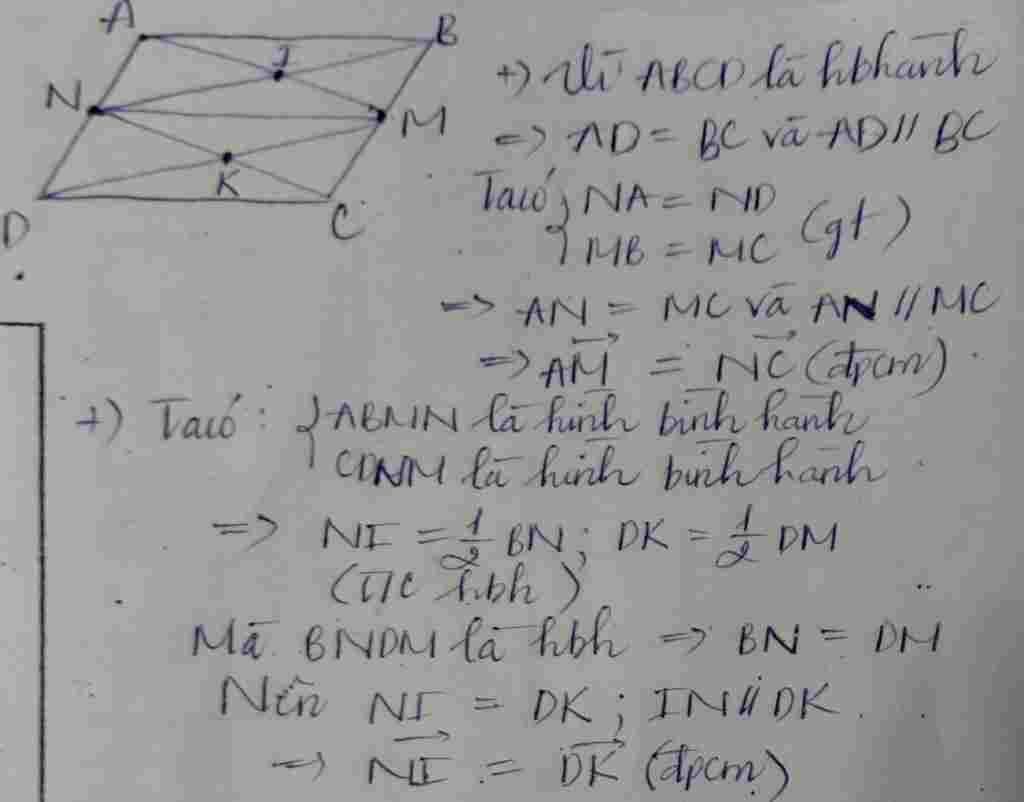 A
B
I
N
M
K
D
C
+) Vì ABCD là hbhành
=> AD = BC và AD // BC
Ta có { NA = ND
MB = MC (gt)
=> AN = MC và AN // MC
=> \overrightarrow{AM} = \overrightarrow{NC} (đpcm).
+) Ta có: { ABMN là hình bình hành
CDNM là hình bình hành.
=> NI = 1/2 BN; DK = 1/2 DM
(T/c hbh)
Mà BNDM là hbh => BN = DM
Nên NI = DK; IN // DK.
=> \overrightarrow{NI} = \overrightarrow{DK} (đpcm)